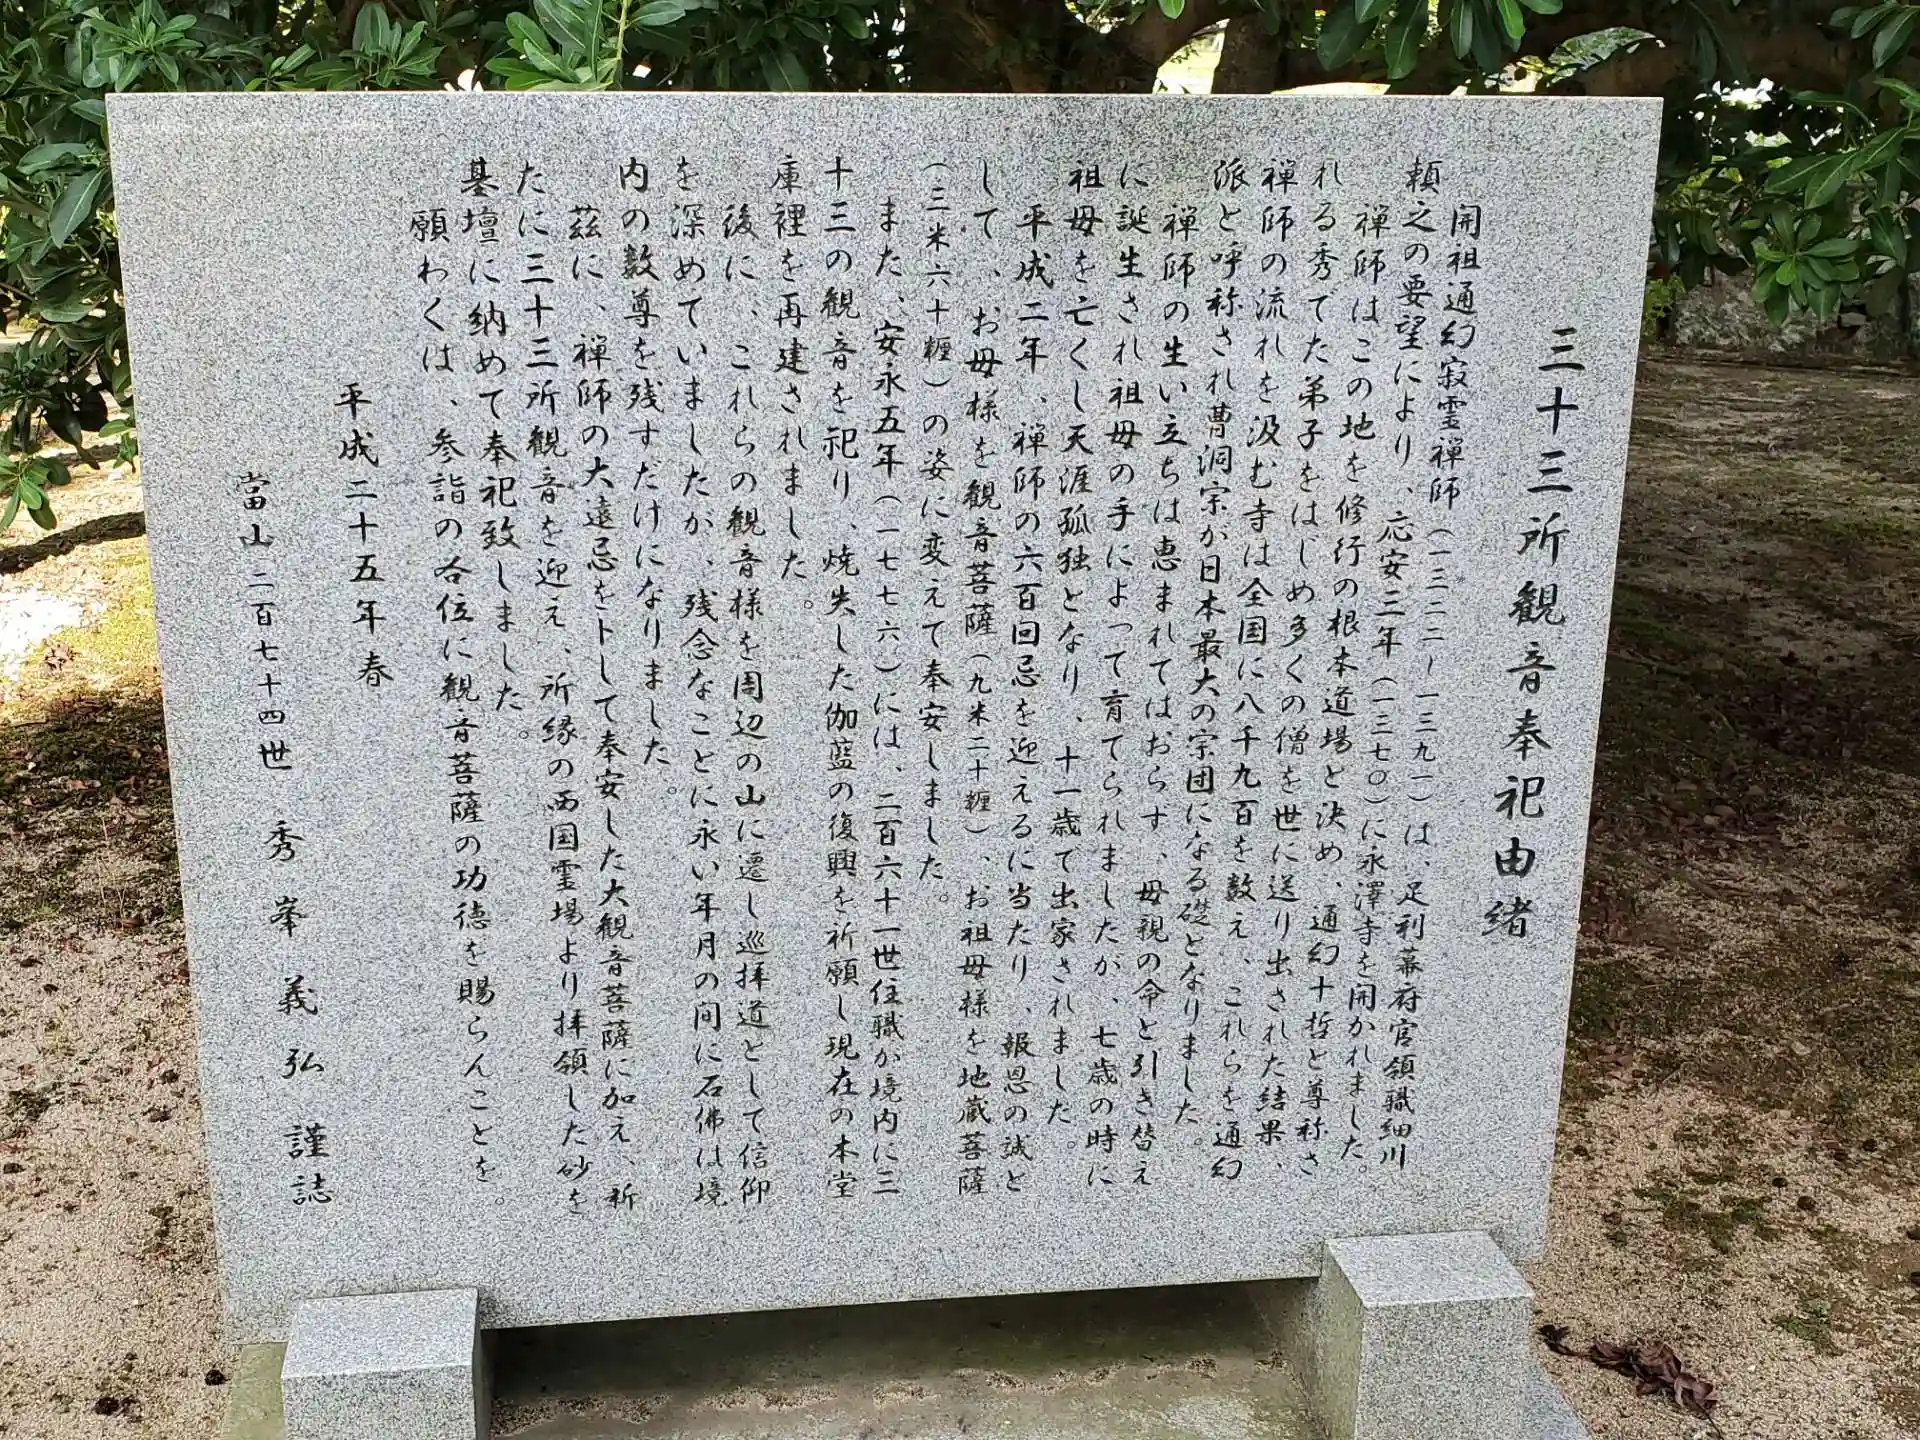 三十三所観音奉祀由緒
開祖通幻寂霊禅師(一三二二〜一三九一)は、足利幕府官領職細川
頼之の要望により、応安三年(一三七〇)に永澤寺を開かれました。
禅師はこの地を修行の根本道場と決め、通幻十哲と尊称さ
れる秀でた弟子をはじめ多くの僧を世に送り出された結果、
禅師の流れを汲む寺は全国に八千九百を数え、これらを通幻
派と呼称され曹洞宗が日本最大の宗団になる礎となりました。
禅師の生い立ちは恵まれてはおらす、母親の命と引き替え
に誕生され祖母の手によって育てられましたが、七歳の時に
祖母を亡くし天涯孤独となり、十一歳で出家されました。
平成二年、禅師の六百回忌を迎えるに当たり、報恩の誠と
して、お母様を観音菩薩(九米二十糎)、お祖母様を地蔵菩薩
(三米六十糎)の姿に変えて奉安しました。
また、安永五年(一七七六)には、二百六十一世住職が境内に三
十三の観音を祀り、焼失した伽藍の復興を祈願し現在の本堂
庫裡を再建されました。
後に、これらの観音様を周辺の山に遷し巡拝道として信仰
を深めていましたが、残念なことに永い年月の間に石佛は境
内の数尊を残すだけになりました。
茲に、禅師の大遠忌をトして奉安した大観音菩薩に加え、新
たに三十三所観音を迎え、所縁の西国霊場より拝領した砂を
基壇に納めて奉祀致しました。
願わくは、参詣の各位に観音菩薩の功徳を賜らんことを。
平成二十五年春
當山二百七十四世 秀峯義弘 謹誌